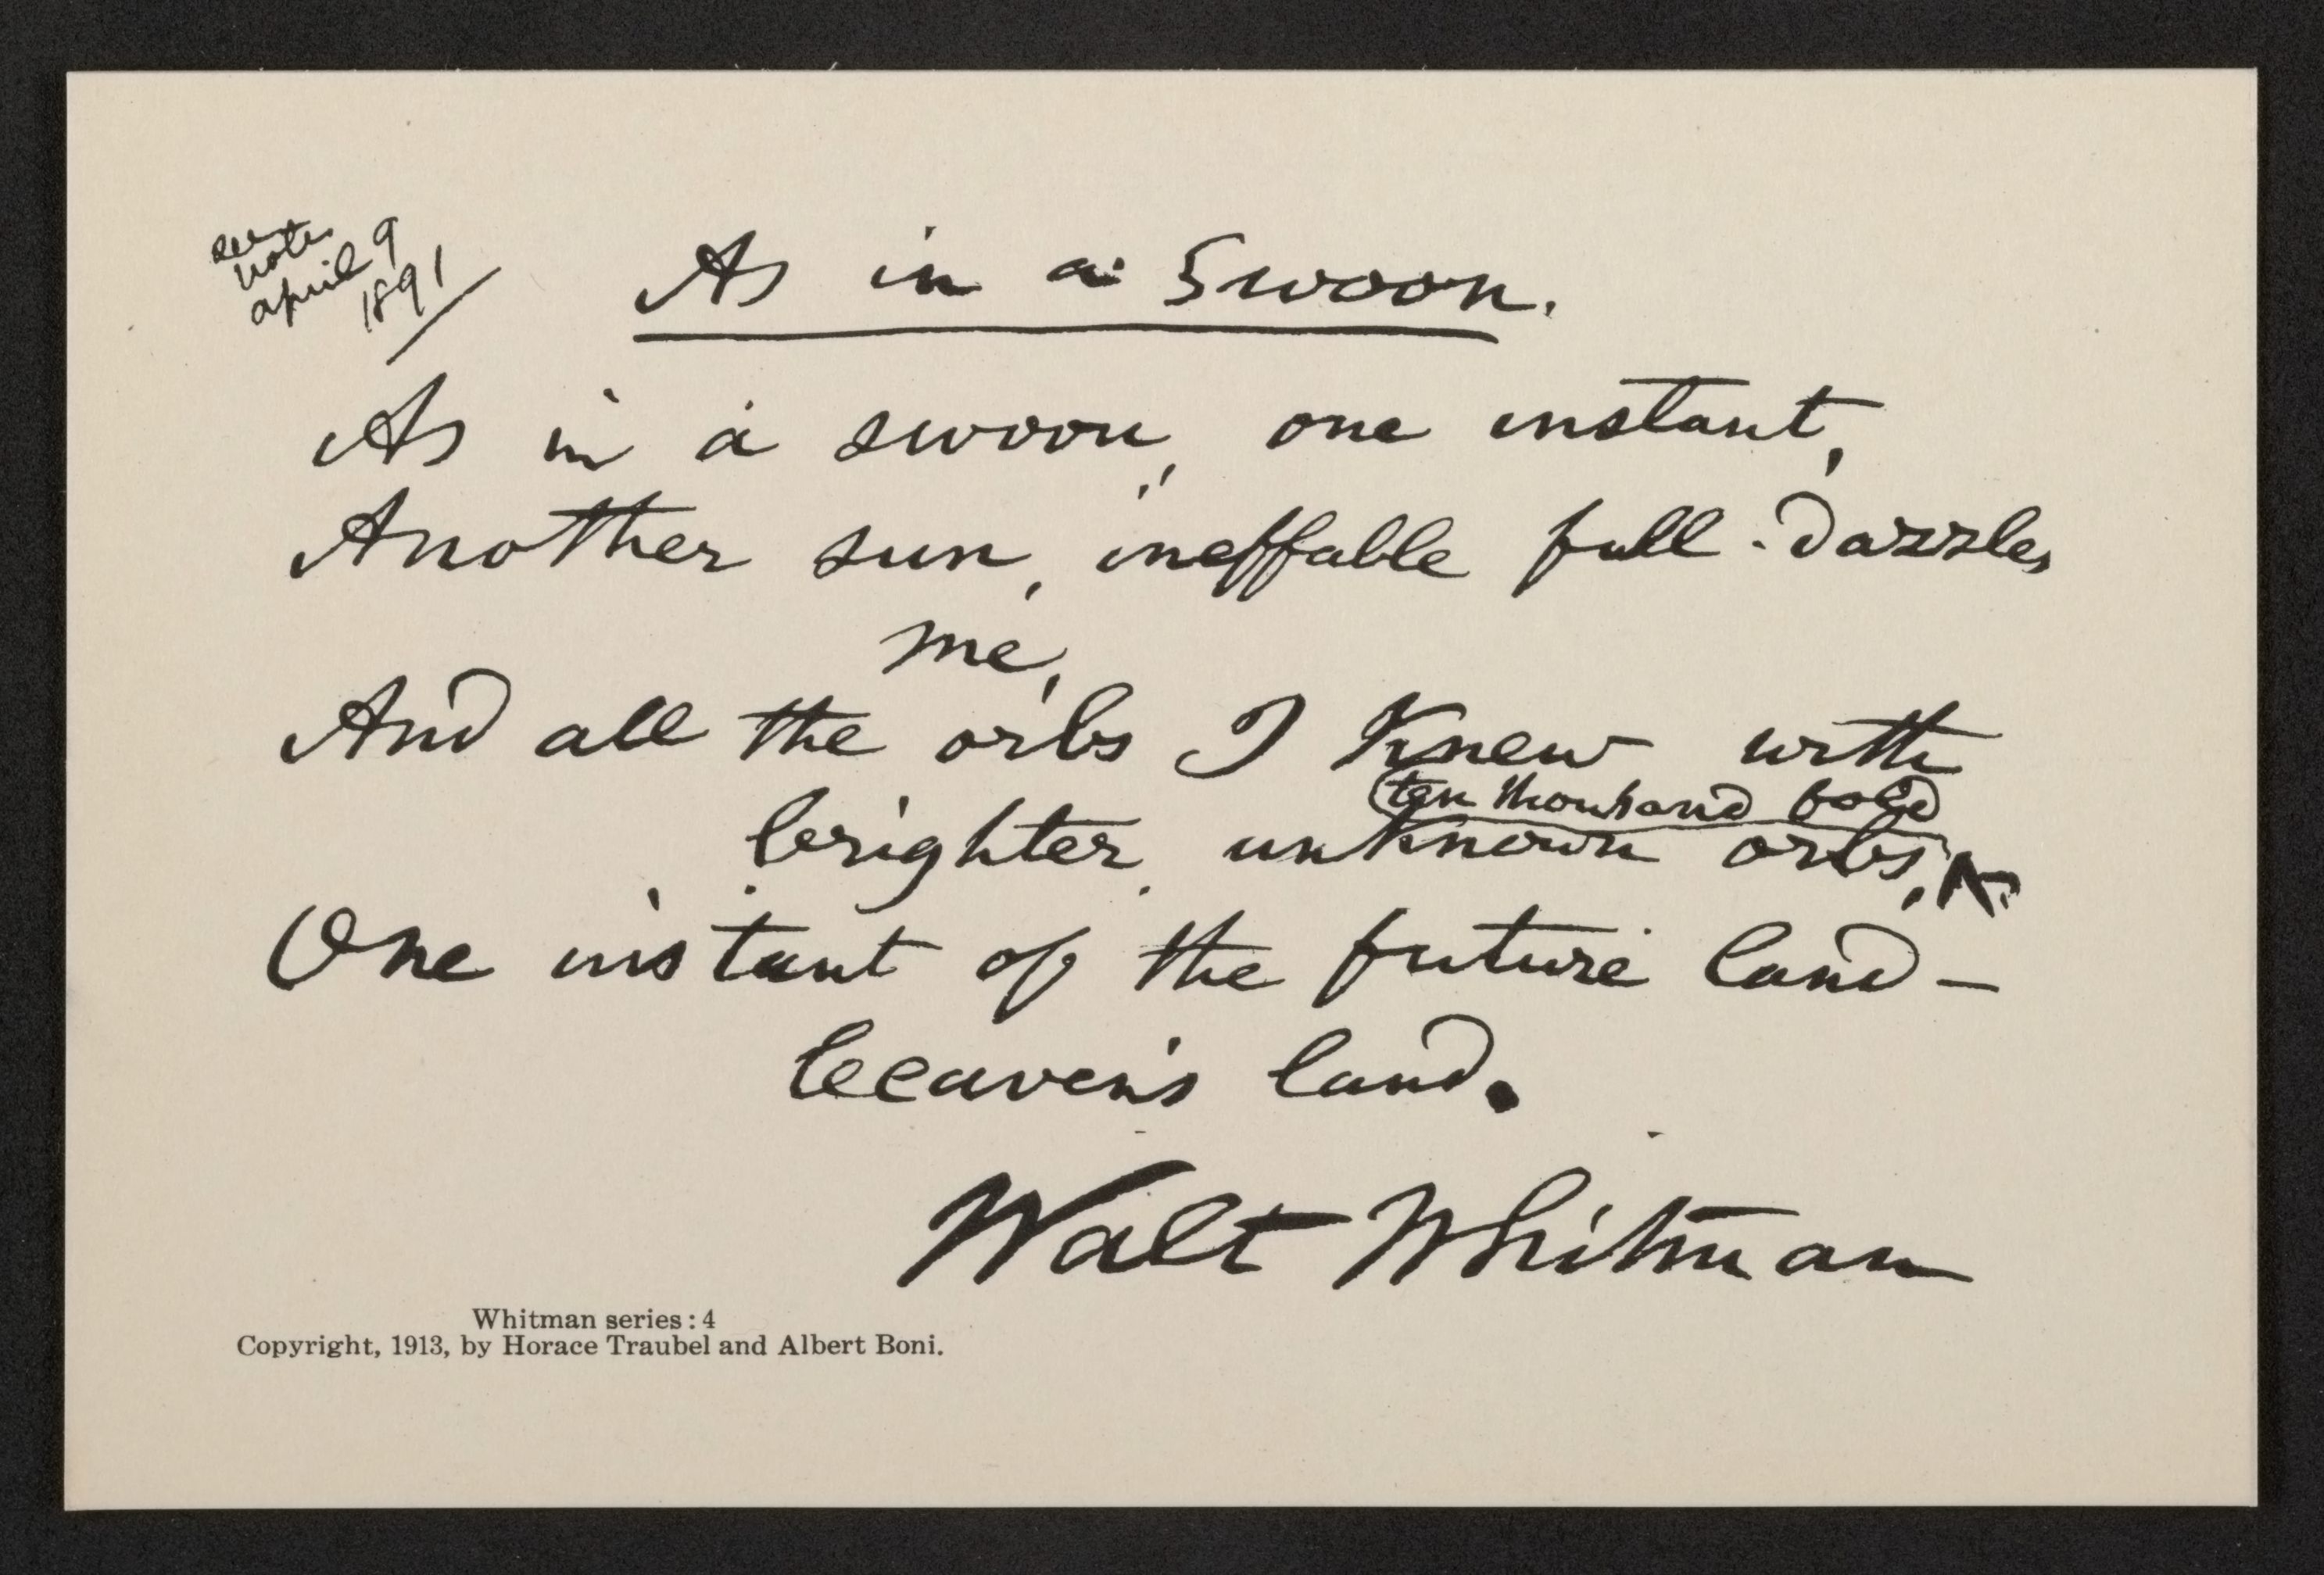 see
note
april 9
1891
As in a Swoon.
As in a swoon, one instant,
Another sun, ineffable full-dazzles
me,
And all the orbs I knew with
ten thousand fold
brighter, unknown orbs,
One instant of the future land—
heaven's land.
Walt Whitman
Whitman series: 4
Copyright, 1913, by Horace Traubel and Albert Boni.